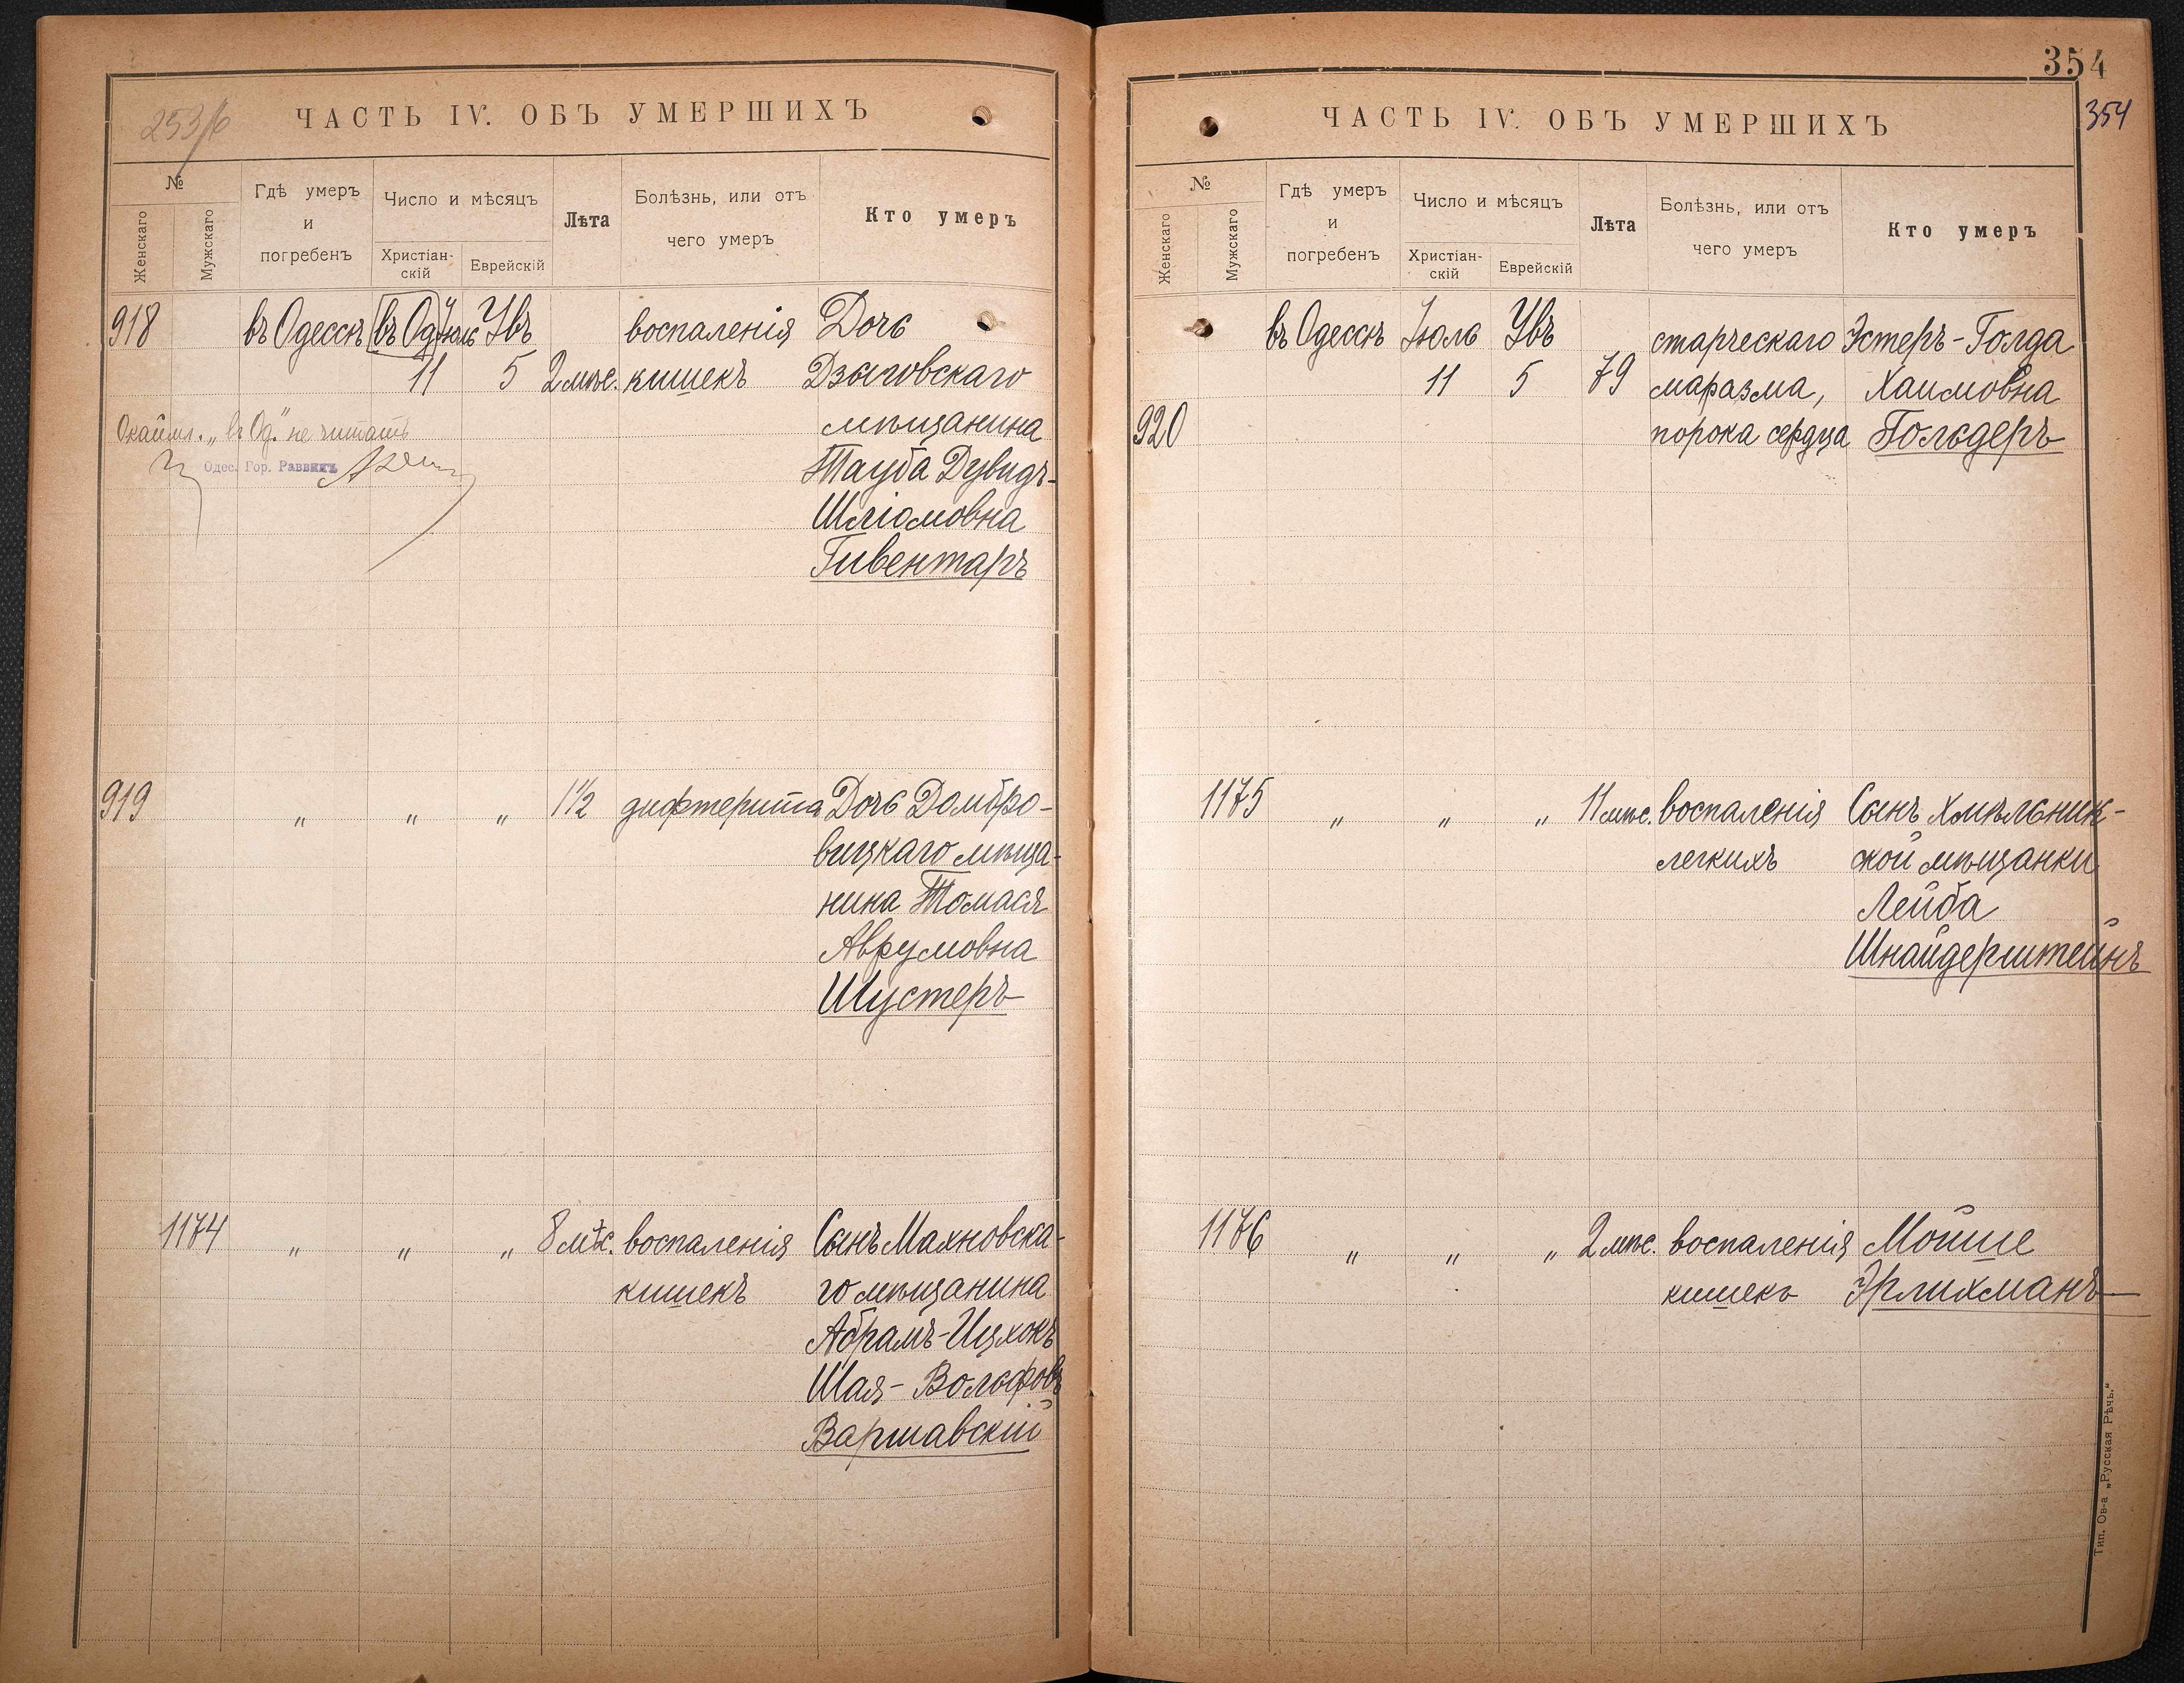 253/6
ЧАСТЬ IV. ОБЪ УМЕРШИХЪ
№
Женскаго
Мужскаго
Гдѣ умеръ
и
погребенъ
Число и мѣсяцъ
Христіан-
скій
Еврейскій
Лѣта
Болѣзнь, или отъ
чего умеръ
Кто умеръ
918 въ Одессѣ въ Од Іюль Увъ воспаленія Дочь
11 5 2 мѣс. кишекъ Дзыговскаго
Окайм. „въ Од." не читать мѣщанина
Одес. Гор. Раввинъ Тауба Дувидъ-
Шліомовна
Гивентаръ
919 „ „ „ 1½ дифтерита Дочь Домбро-
вицкаго мѣща-
нина Томася
Аврумовна
Шустеръ
1174 „ „ „ 8 мѣс. воспаленія Сынъ Махновска-
кишекъ го мѣщанина
Абрамъ-Ицхокъ
Шая-Вольфовъ
Варшавскій
354
354
ЧАСТЬ IV. ОБЪ УМЕРШИХЪ
№
Женскаго
Мужскаго
Гдѣ умеръ
и
погребенъ
Число и мѣсяцъ
Христіан-
скій
Еврейскій
Лѣта
Болѣзнь, или отъ
чего умеръ
Кто умеръ
въ Одессѣ Іюль Увъ старческаго Эстеръ-Голда
11 5 79 маразма, Хаимовна
920 порока сердца Гольдеръ
1175 „ „ „ 11 мѣс. воспаленія Сынъ Хмѣльник-
легкихъ ской мѣщанки
Лейба
Шнайдерштейнъ
1176 „ „ „ 2 мѣс. воспаленія Мойше
кишекъ Эрлихманъ
Тип. Ов-а „Русская Рѣчь."